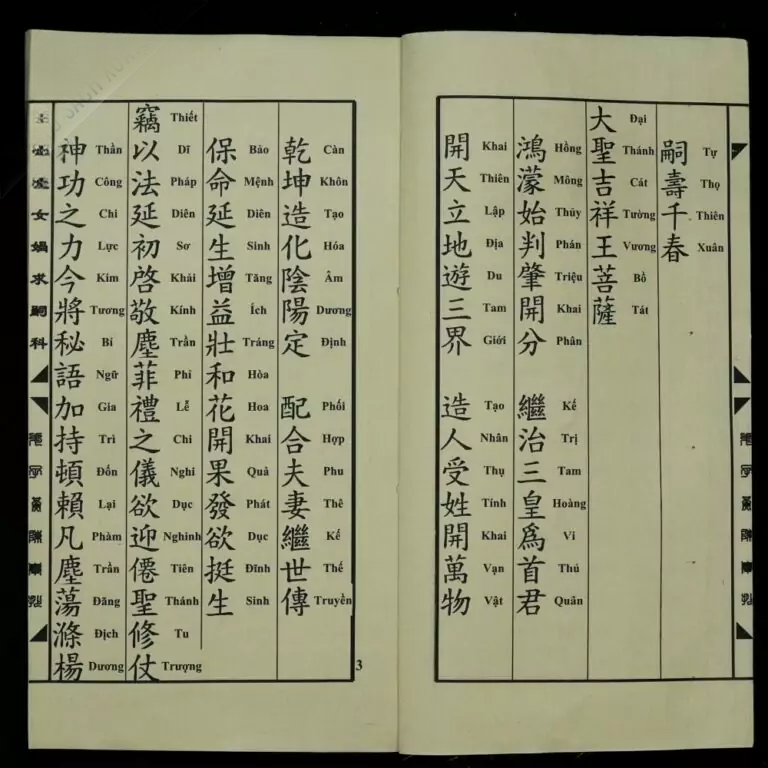 嗣壽千春
Tự Thọ Thiên Xuân
大聖吉祥王菩薩
Đại Thánh Cát Tường Vương Bồ Tát
鴻濛始判肇開分 繼治三皇爲首君
Hồng Mông Thủy Phán Triệu Khai Phân Kế Trị Tam Hoàng Vi Thủ Quân
開天立地遊三界 造人受姓開萬物
Khai Thiên Lập Địa Du Tam Giới Tạo Nhân Thụ Tính Khai Vạn Vật
乾坤造化陰陽定 配合夫妻繼世傳
Càn Khôn Tạo Hóa Âm Dương Định Phối Hợp Phu Thê Kế Thế Truyền
保命延生增益壯和花開果發欲挺生
Bảo Mệnh Diên Sinh Tăng Ích Tráng Hòa Hoa Khai Quả Phát Dục Đĩnh Sinh
竊以法延初啓敬塵菲禮之儀欲迎僊聖修仗
Thiết Dĩ Pháp Diên Sơ Khải Kính Trần Phỉ Lễ Chi Nghi Dục Nghinh Tiên Thánh Tu Trượng
神功之力今將秘語加持頓賴凡塵蕩滌楊
Thần Công Chi Lực Kim Tương Bí Ngữ Gia Trì Đốn Lại Phàm Trần Đãng Địch Dương
女媧求嗣科
3